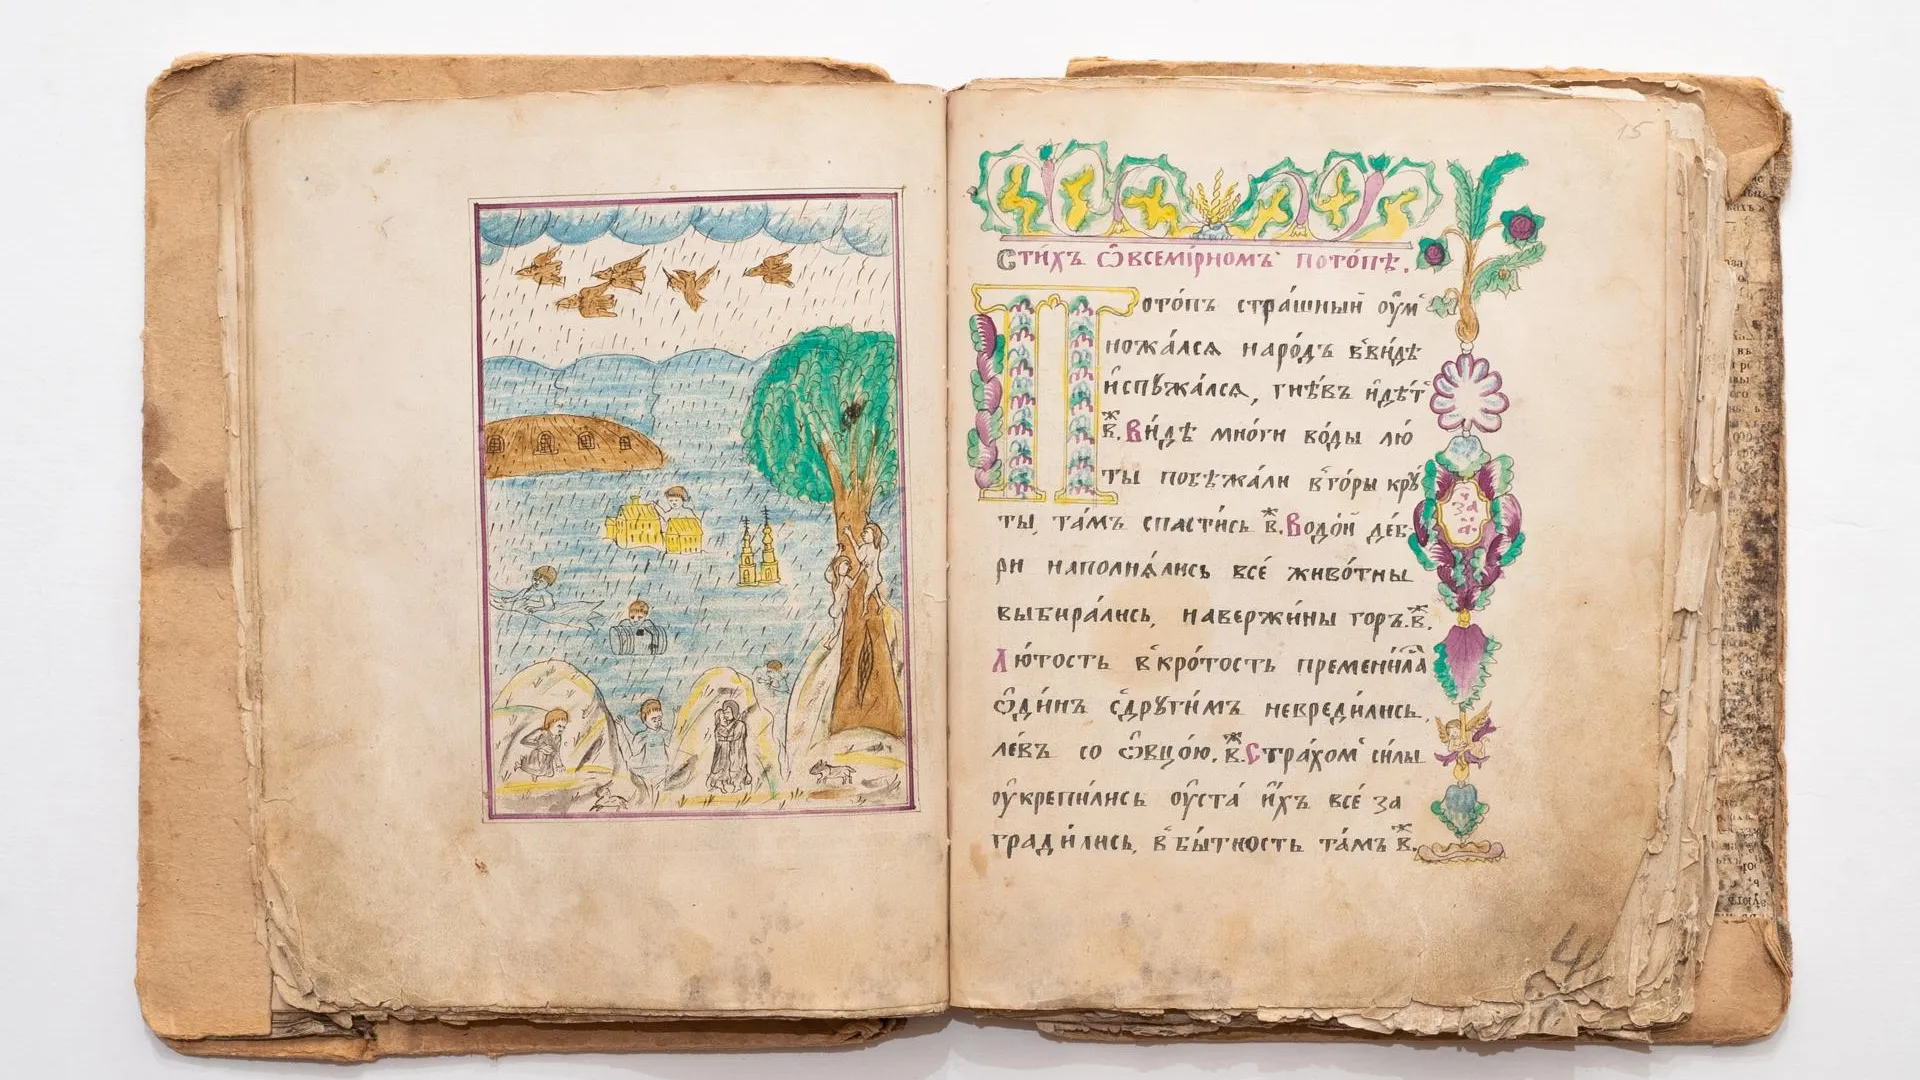 15
Сти́хъ ѿвсемі́рномъ пото́пѣ.
Пото́пъ стра́шный оу҆м
ножа́лся наро́дъ в̾ви́дѣ
и҆спꙋжа́лся, гнѣ́въ и҆дѣ́т
в҃ж. Ви́дѣ мно́ги во́ды лю́
ты побѣжа́ли в̾го́ры крꙋ́
ты, та́мъ спасти́сь в҃ж. Водо́й де́б-
ри наполня́лись всѐ живо́тны
выбира́лись, навержи́ны го́ръ. в҃ж.
Лю́тость в̾кро́тость премени́ла
ѡ҆ди́нъ з̾дрꙋги́мъ невреди́лись,
ле́въ со ѻ҆вцо́ю. в҃ж. Стра́хом си́лы
оу҆крепи́лись оу҆ста̀ и҆́хъ всѐ за
гради́лись, в̾бы́тность та́мъ в҃ж.